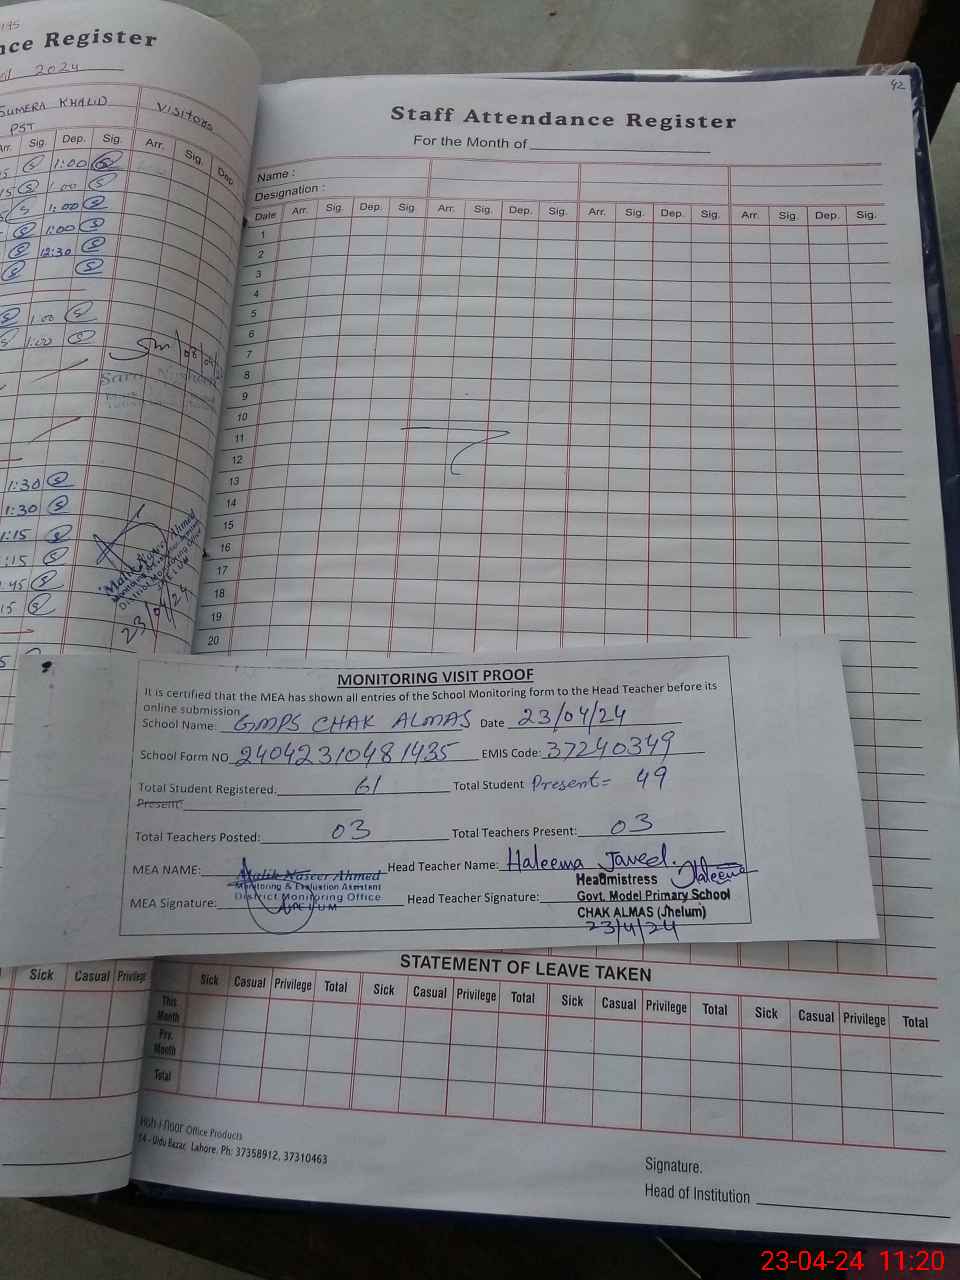 nce Register
2024
SUMERA KHALID
VISITORS
PST
Arr. Sig. Dep. Sig. Arr. Sig. Dep
1:00
1:00
1:00
1:00
12:30
1:00
1:00
1:30
1:30
1:15
:15
:45
15
08/04/2
Malik Naseer Ahmed
District Monitoring Office
JHELUM
23/04/24
42
Staff Attendance Register
For the Month of
Name :
Designation :
Date Arr. Sig. Dep. Sig. Arr. Sig. Dep. Sig. Arr. Sig. Dep. Sig. Arr. Sig. Dep. Sig.
1
2
3
4
5
6
7
8
9
10
11
12
13
14
15
16
17
18
19
20
MONITORING VISIT PROOF
It is certified that the MEA has shown all entries of the School Monitoring form to the Head Teacher before its
online submission
School Name: GMPS CHAK ALMAS Date 23/04/24
School Form NO 24042310481435 EMIS Code: 37240349
Total Student Registered: 61 Total Student Present= 49
Present:
Total Teachers Posted: 03 Total Teachers Present: 03
MEA NAME: Malik Naseer Ahmed Head Teacher Name: Haleema Javed.
Monitoring & Evaluation Assistant Headmistress Haleema
MEA Signature: District Monitoring Office Head Teacher Signature: Govt. Model Primary School
JHELUM CHAK ALMAS (Jhelum)
23/4/24
STATEMENT OF LEAVE TAKEN
Sick Casual Privilege Sick Casual Privilege Total Sick Casual Privilege Total Sick Casual Privilege Total Sick Casual Privilege Total
This Month
Prv. Month
Total
Koh-i-Noor Office Products
14 - Urdu Bazar, Lahore. Ph: 37358912, 37310463
Signature.
Head of Institution
23-04-24 11:20